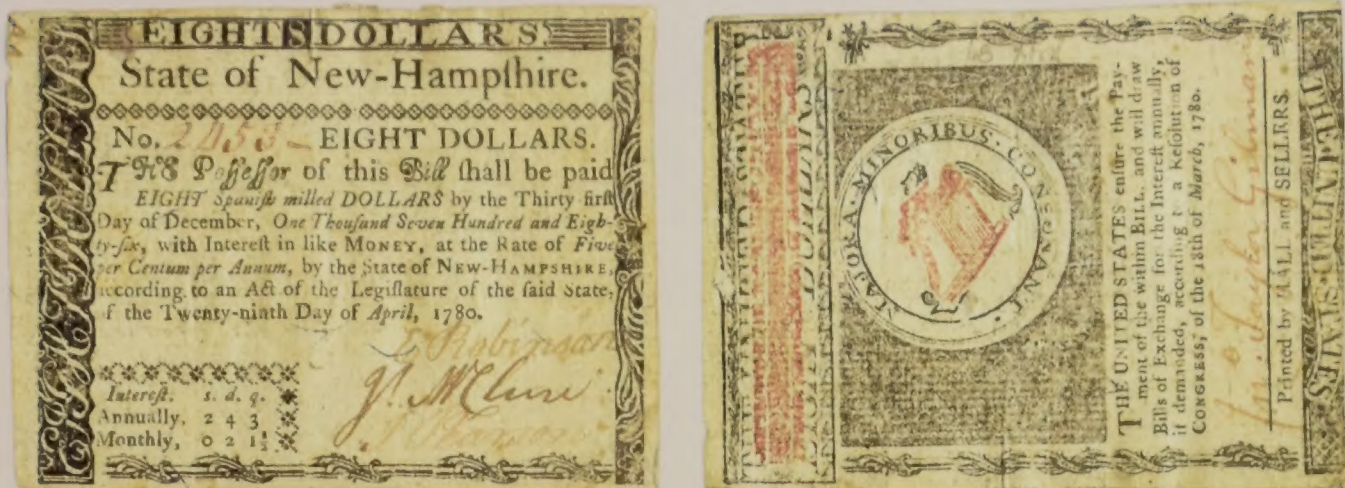 EIGHT DOLLARS
State of New-Hampſhire.
No. 2453 EIGHT DOLLARS.
THE Poſſeſſor of this Bill ſhall be paid
EIGHT Spaniſh milled DOLLARS by the Thirty firſt
Day of December, One Thouſand Seven Hundred and Eigh-
ty-ſix, with Intereſt in like MONEY, at the Rate of Five
per Centum per Annum, by the State of NEW-HAMPSHIRE,
according to an Act of the Legiſlature of the ſaid State,
of the Twenty-ninth Day of April, 1780.
Robinson
Js. McClure
Intereſt. s. d. q.
Annually, 2 4 3
Monthly, 0 2 1½
EIGHT DOLLARS
MAJORA · MINORIBUS · CONSONANT
THE UNITED STATES enſure the Pay-
ment of the within BILL, and will draw
Bills of Exchange for the Intereſt annually,
if demanded, according to a Reſolution of
CONGRESS, of the 18th of March, 1780.
Jno Taylor Gilman
Printed by HALL and SELLERS.
THE UNITED STATES